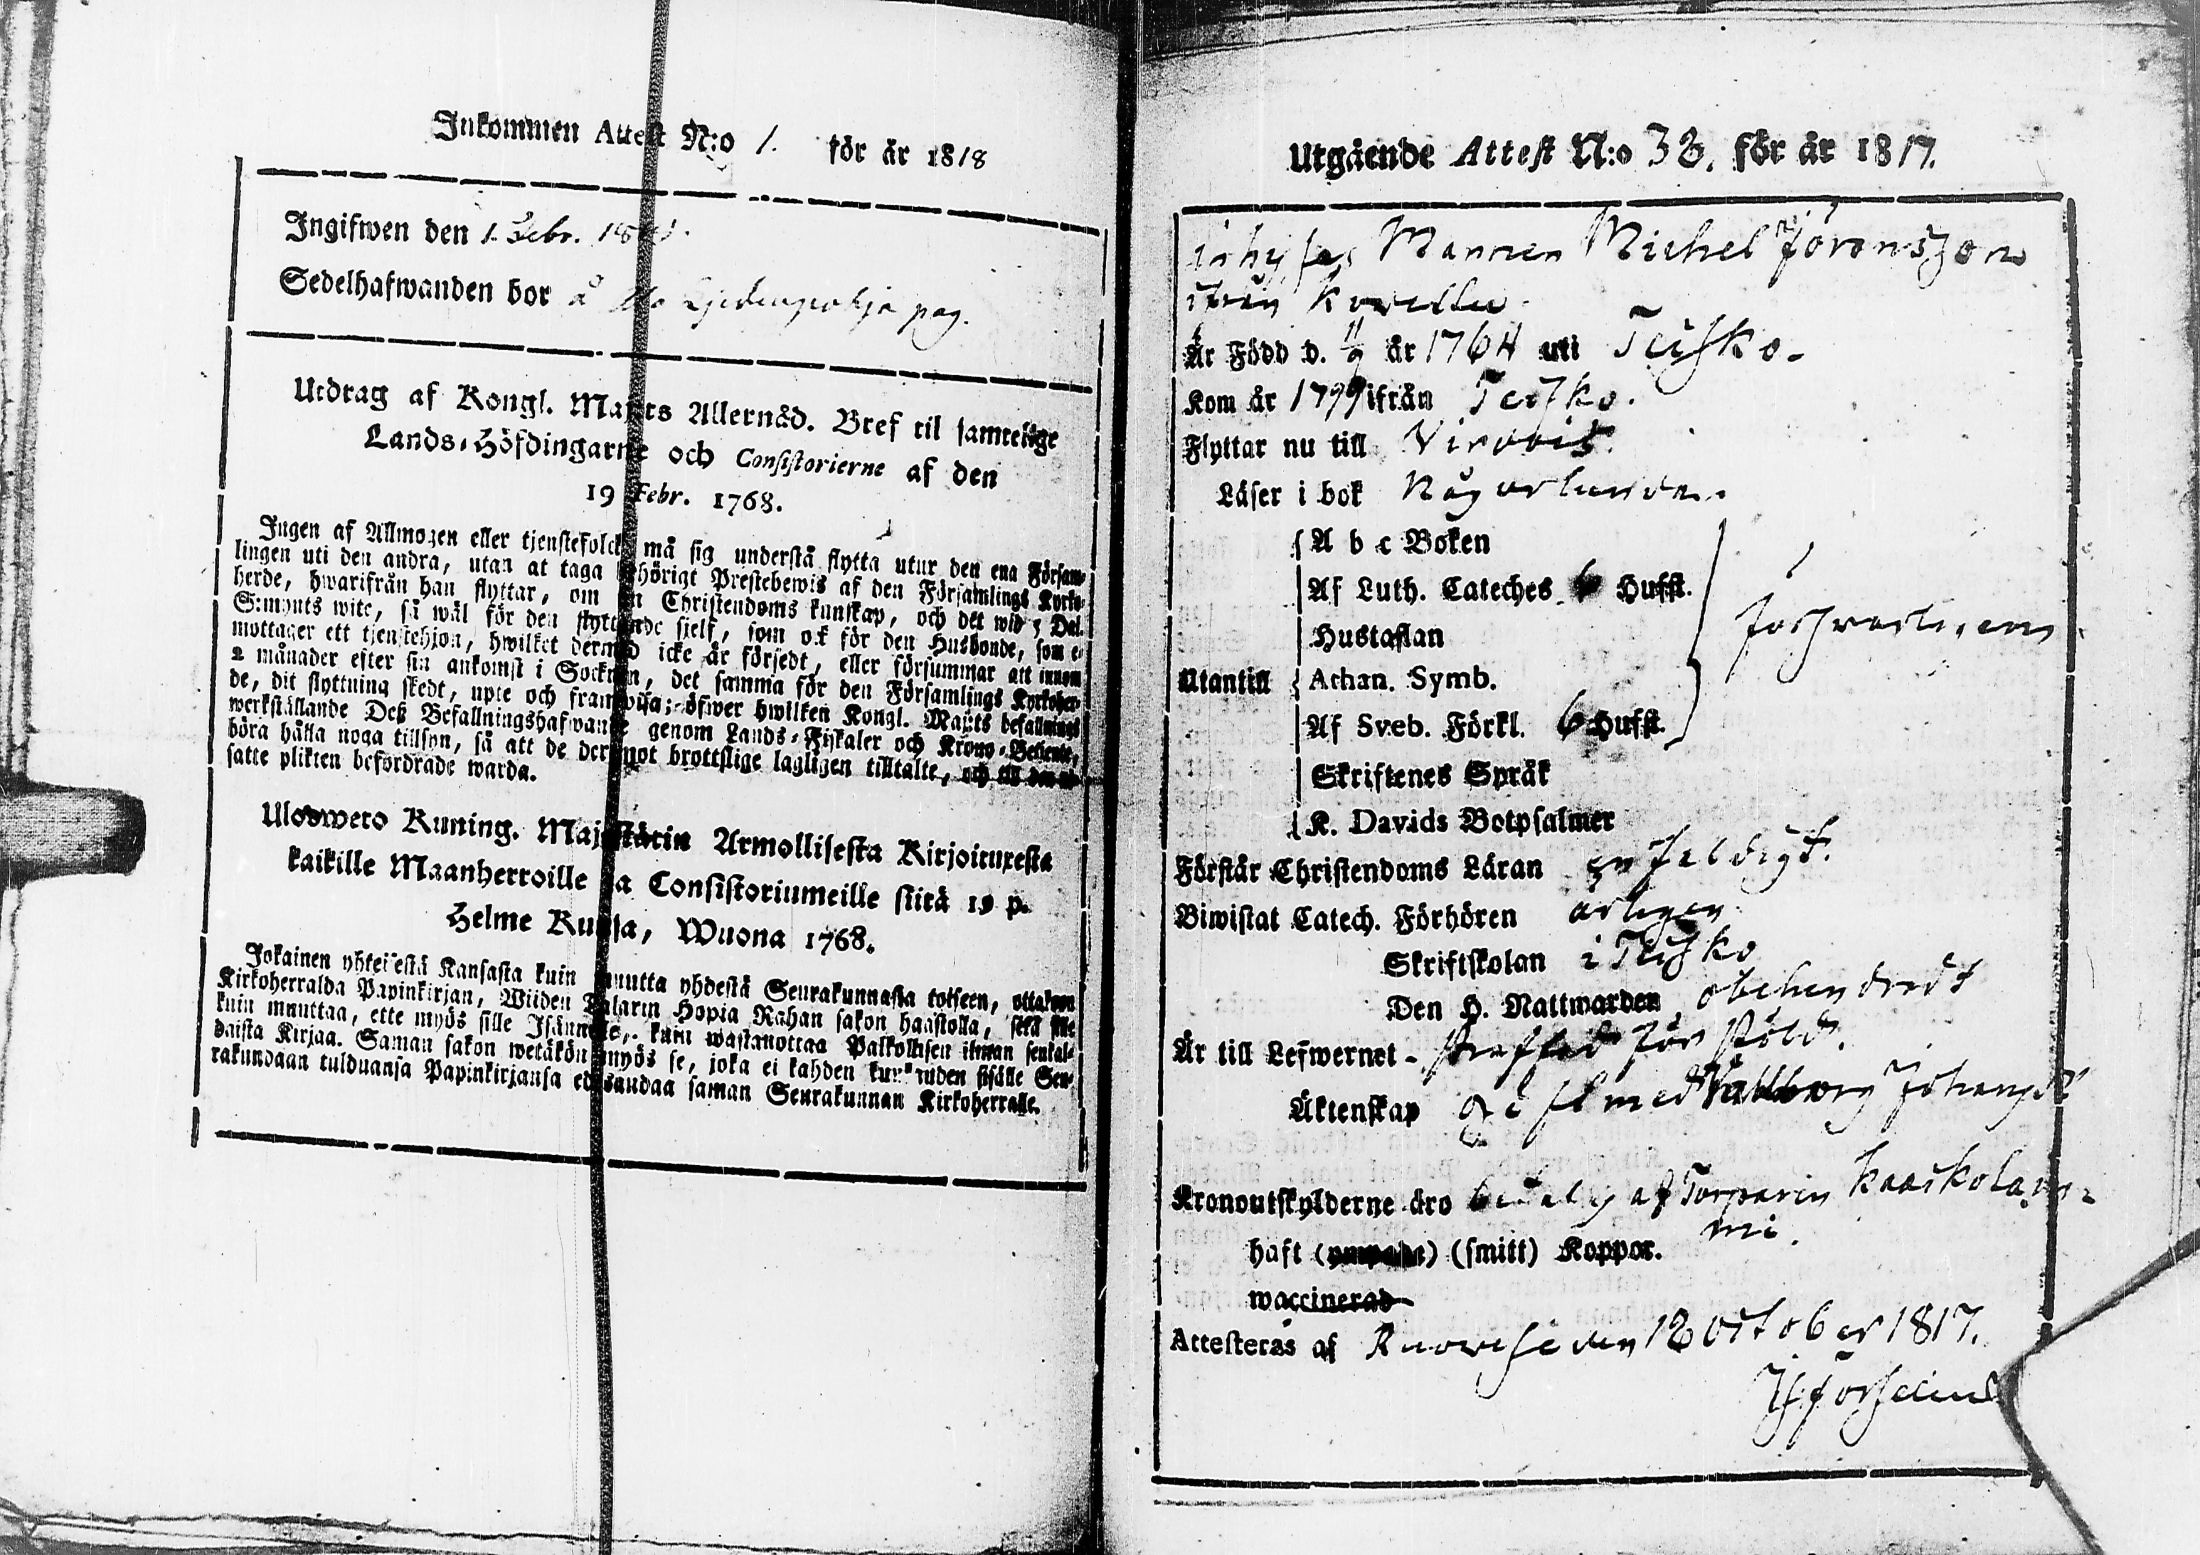 Inkommen Attest N:o 1. för år 1818
Ingifwen den 1. Febr. 
Sedelhafwanden bor å pag.
Utdrag af Kongl. Maj:ts Allernåd. Bref til samtelige
Lands-Höfdingarne och Consistorierne af den
19 Febr. 1768.
Ingen af Allmogen eller tjenstefolck må sig understå flytta utur den ena Försam-
lingen uti den andra, utan at taga behörigt Prestebewis af den Församlings Kyrko-
herde, hwarifrån han flyttar, om sin Christendoms kunskap, och det wid 5 Dal.
S:mynts wite, så wäl för den flyttande sjelf, som ock för den Husbonde, som e-
mottager ett tjenstehjon, hwilket dermed icke är försedt, eller försummar att innom
2 månader efter sin ankomst i Socknen, det samma för den Församlings Kyrkoher-
de, dit flyttning skedt, upte och framwisa; öfwer hwilken Kongl. Maj:ts befallnings
werkställande Deß Befallningshafwande genom Lands-Fiskaler och Krono-Betiente,
böra hålla noga tillsyn, så att de deremot brottslige lagligen tilltalte, och till den ut-
satte plikten befordrade warda.
Ulosweto Kuning. Majestätin Armollisesta Kirjoituxesta
kaikille Maanherroille ja Consistoriumeille siitä 19 p.
Helme Kuusa, Wuona 1768.
Jokainen yhteisestä Kansasta kuin muutta yhdestä Seurakunnasta toiseen, ottakoon
Kirkoherralda Papinkirjan, Wiiden Talarin Hopia Rahan sakon haastolla, sekä sille
kuin muuttaa, ette myös sille Isännälle, kuin wastanottaa Palkollisen ilman senkal-
daista Kirjaa. Saman sakon wetäkön myös se, joka ei kahden kuukauden sisälle Seu-
rakundaan tulduansa Papinkirjansa edesandaa saman Seurakunnan Kirkoherralle.
Utgående Attest N:o 38. för år 1817.
inhyses Mannen Michel Jöranszon
ifrån
Är Född d. 11/9 år 1764 uti Teisko.
Kom år 1799 ifrån Teisko.
Flyttar nu till Virdois.
Läser i bok någorlunda.
A b c Boken
Af Luth. Cateches 6 Hufst.
Hustaflan
försvarligen
Utantill Athan. Symb.
Af Sveb. Förkl. 6 Hufst.
Skriftenes Språk
K. Davids Botpsalmer
Förstår Christendoms Läran enfeldigt.
Biwistat Catech. Förhören årligen
Skriftskolan i Teisko
Den H. Nattwarden obehindradt
Är till Lefwernet straffad för stöld.
Äktenskap gift med Vallborg Johansd:r
Kronoutskylderne äro betalt af Torparen Kaaskolam-
mi.
haft () (smitt) Koppor.
waccinerad
Attesteras af Ruovesi den 18 october 1817.